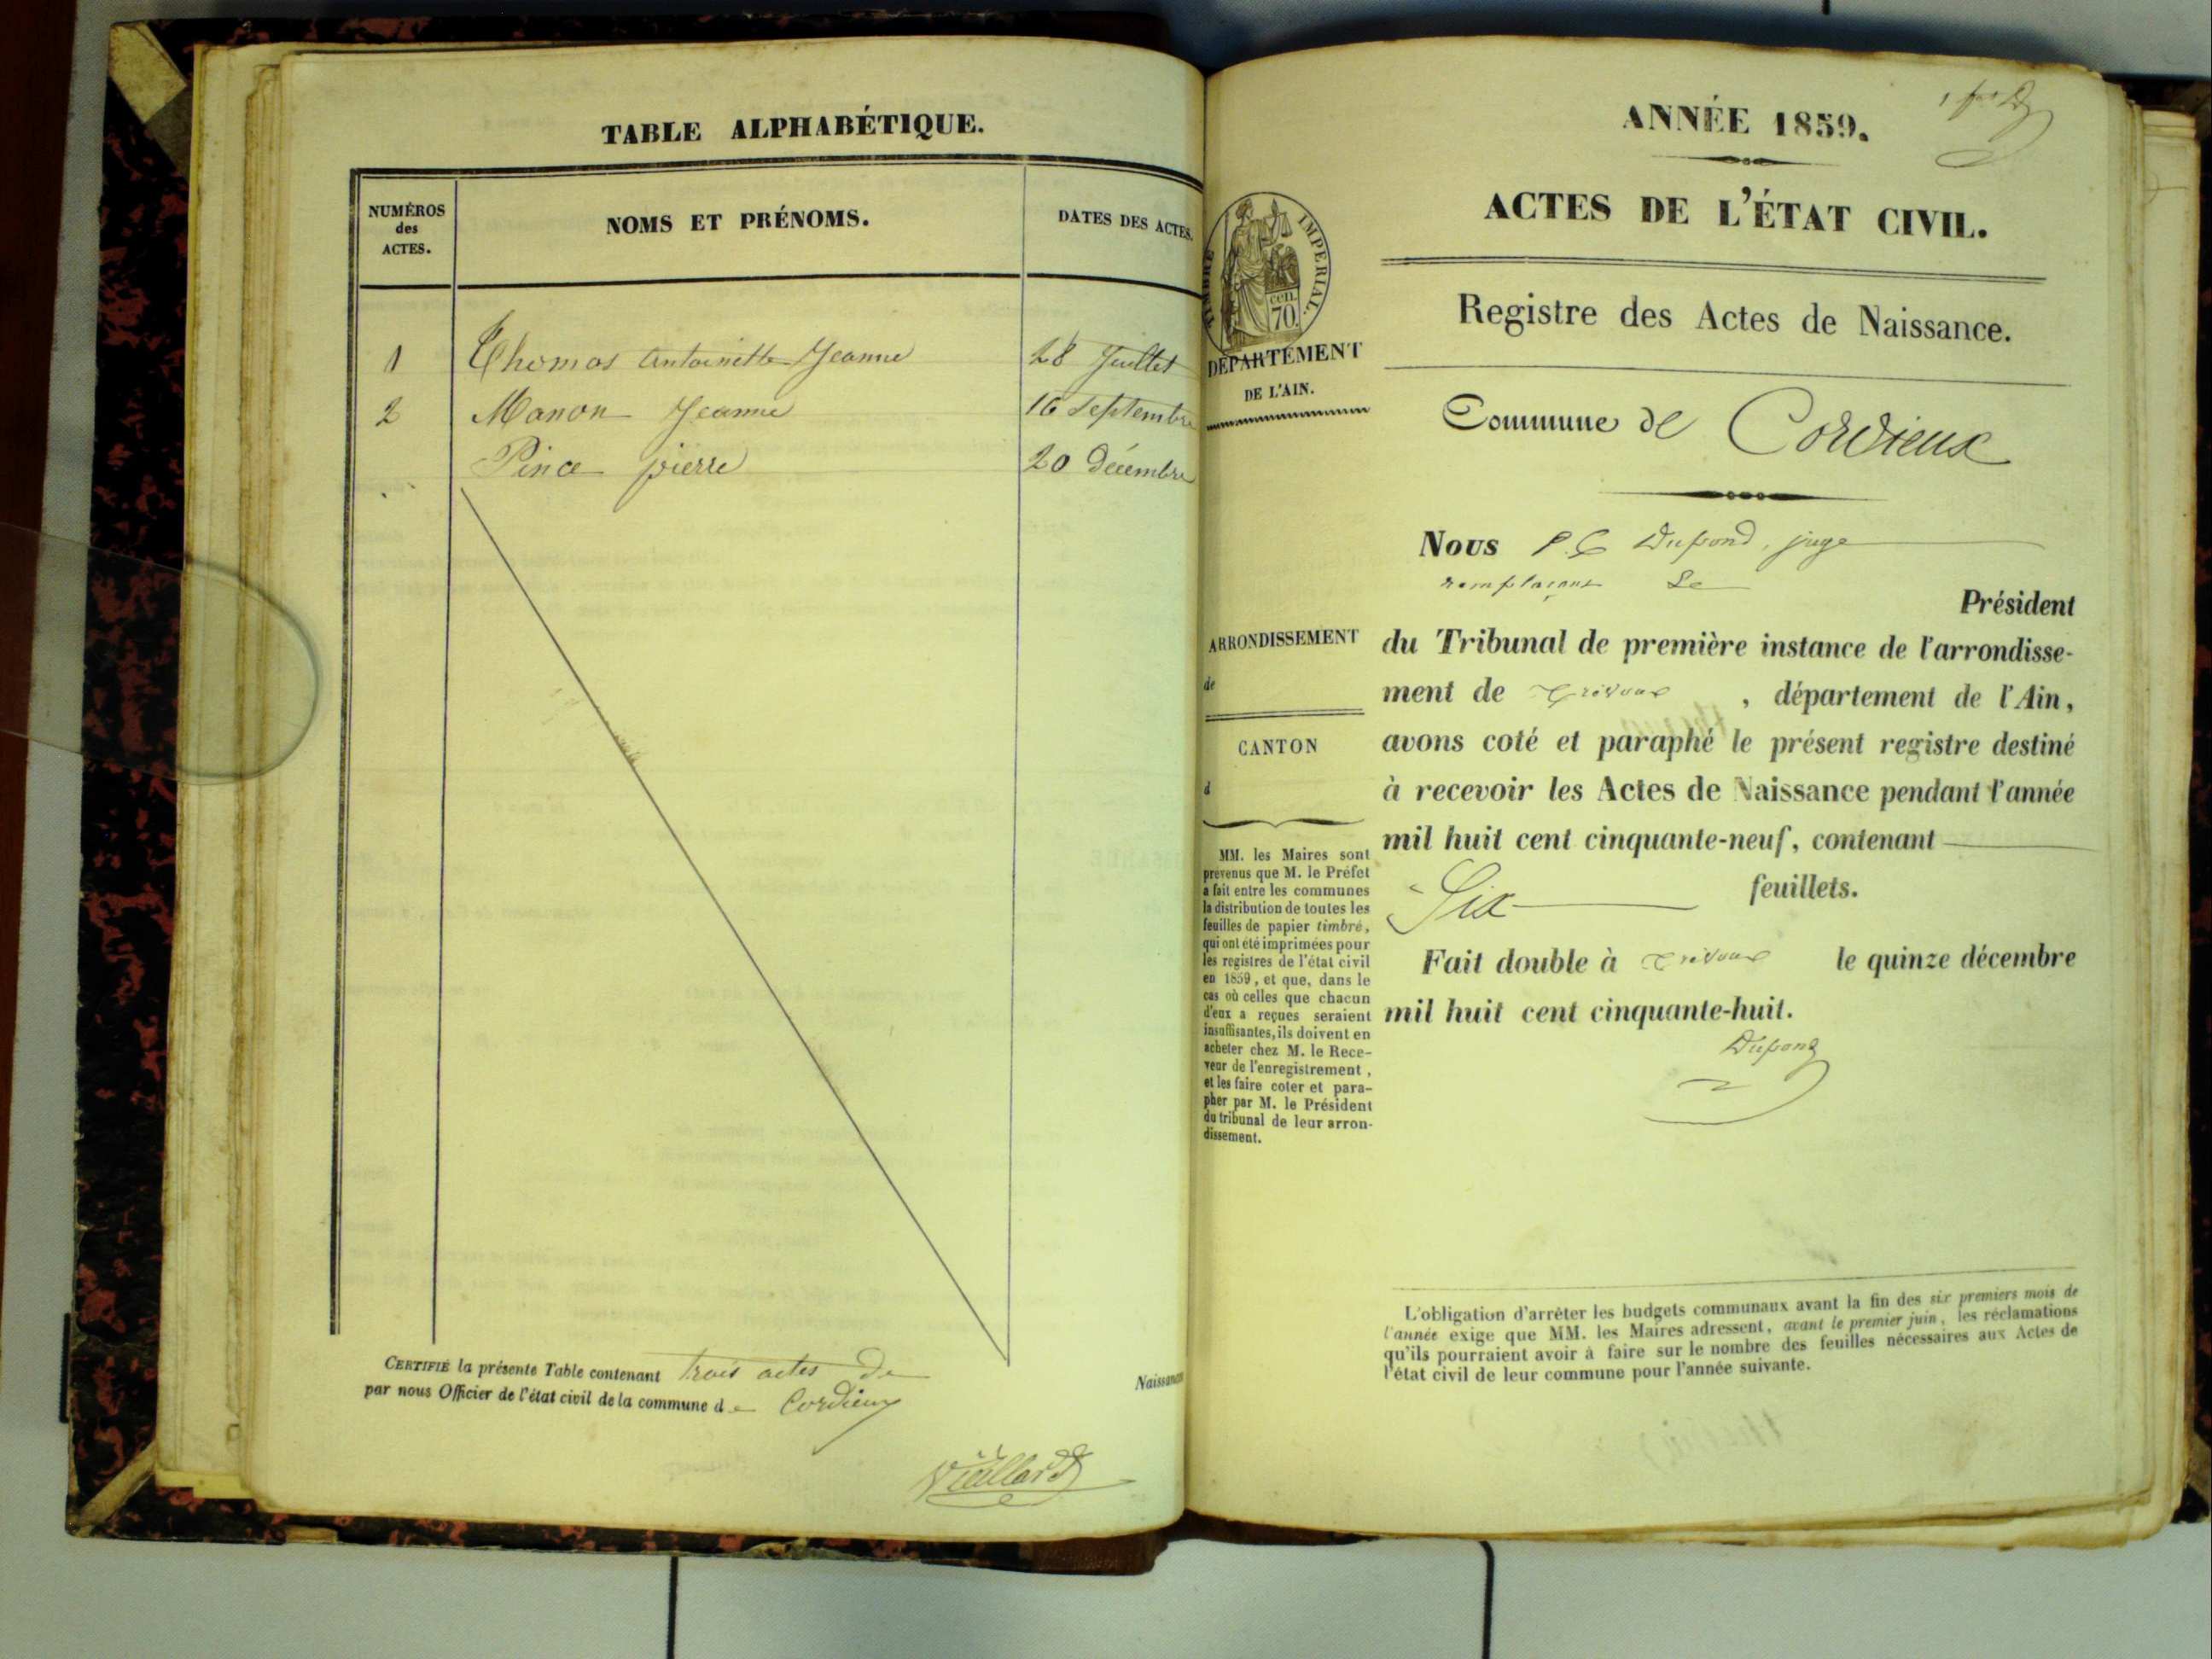 TABLE ALPHABÉTIQUE.
NUMÉROS
des
ACTES.
NOMS ET PRÉNOMS.
DATES DES ACTES.
1 Thomas Antoinette Jeanne 28 Juillet
2 Manon Jeanne 16 Septembre
Pince pierre 20 Décembre
CERTIFIÉ la présente Table contenant trois actes de
par nous Officier de l'état civil de la commune de Cordieux
Vieillard
Naissance
ANNÉE 1859.
ACTES DE L'ÉTAT CIVIL.
Registre des Actes de Naissance.
TIMBRE IMPERIAL.
cen.
70.
DÉPARTEMENT
DE L'AIN.
Commune de Cordieux
Nous P. C Dupond, juge
remplaçant Le
Président
du Tribunal de première instance de l'arrondisse-
ment de Trévoux, département de l'Ain,
avons coté et paraphé le présent registre destiné
à recevoir les Actes de Naissance pendant l'année
mil huit cent cinquante-neuf, contenant
Six feuillets.
Fait double à Trévoux le quinze décembre
mil huit cent cinquante-huit.
Dupond
ARRONDISSEMENT
de
CANTON
d
MM. les Maires sont
prévenus que M. le Préfet
a fait entre les communes
la distribution de toutes les
feuilles de papier timbré,
qui ont été imprimées pour
les registres de l'état civil
en 1859, et que, dans le
cas où celles que chacun
d'eux a reçues seraient
insuffisantes, ils doivent en
acheter chez M. le Rece-
veur de l'enregistrement,
et les faire coter et para-
pher par M. le Président
du tribunal de leur arron-
dissement.
L'obligation d'arrêter les budgets communaux avant la fin des six premiers mois de
l'année exige que MM. les Maires adressent, avant le premier juin, les réclamations
qu'ils pourraient avoir à faire sur le nombre des feuilles nécessaires aux Actes de
l'état civil de leur commune pour l'année suivante.